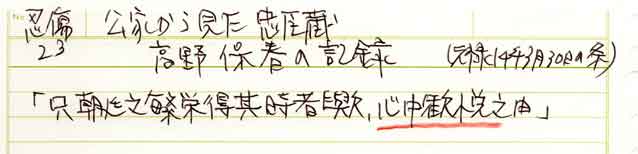 No.
忍傷 公家から見た忠臣蔵
23 高野保春の記録 (元禄14年3月30日の条)
「只朝廷之繁栄得其時者歟、心中歓悦之由」